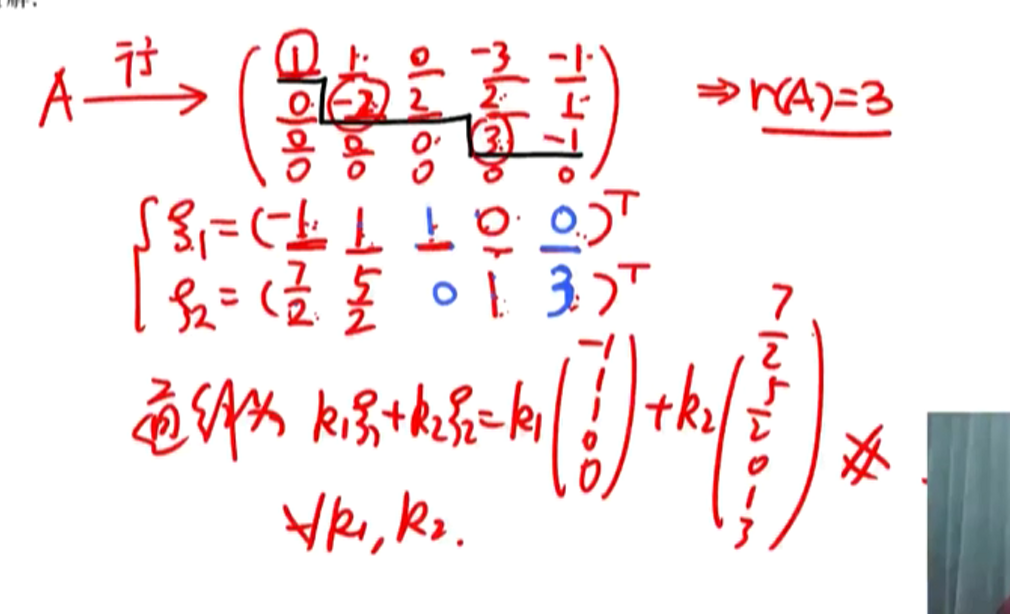 解:
A 行→ ( 1 1 0 -3 -1 ⇒ r(A)=3
0 -2 2 2 1
0 0 0 3 -1
0 0 0 0 0 )
ξ₁=(-1 1 1 0 0)ᵀ
ξ₂=(7/2 5/2 0 1 3)ᵀ
通解为 k₁ξ₁+k₂ξ₂=k₁(-1 1 1 0 0)+k₂(7/2 5/2 0 1 3)
∀k₁,k₂.